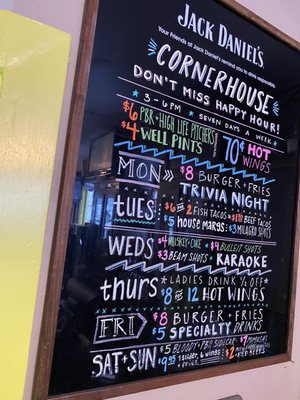 JACK DANIEL'S
Your Friends at Jack Daniel's remind you to drink responsibly.
CORNERHOUSE
DON'T MISS HAPPY HOUR!
3-6PM ★ SEVEN DAYS A WEEK ★
$6 PBR + HIGH LIFE PITCHERS
$4 WELL PINTS
70¢ HOT WINGS
MON >> $8 BURGER + FRIES
TRIVIA NIGHT
TUES $6 FOR 2 FISH TACOS $1.50 BEEF TACOS
$5 HOUSE MARGS $3 MILAGRO SHOTS
WEDS $4 WHISKEY-COKE $4 BULLEIT SHOTS
$3 BEAM SHOTS KARAOKE
thurs LADIES DRINK ½ OFF
$8 FOR 12 HOT WINGS
FRI $8 BURGER + FRIES
$5 SPECIALTY DRINKS
SAT + SUN $5 BLOODY + PBR SIDECAR $7 MIMOSAS
$9.95 1 SLIDER, 6 WINGS + FRIES $2 RED BEERS